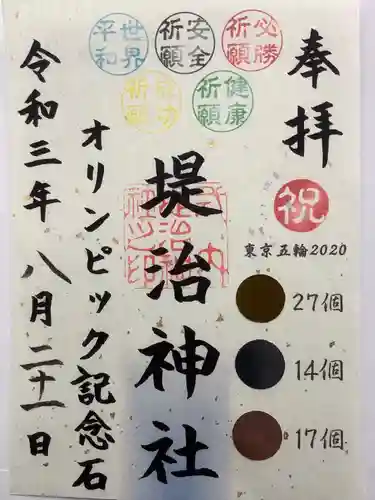 奉拝
祝
東京五輪2020
27個
14個
17個
必勝祈願
安全祈願
世界平和
健康祈願
成功祈願
堤治神社
オリンピック記念石
令和三年八月二十一日